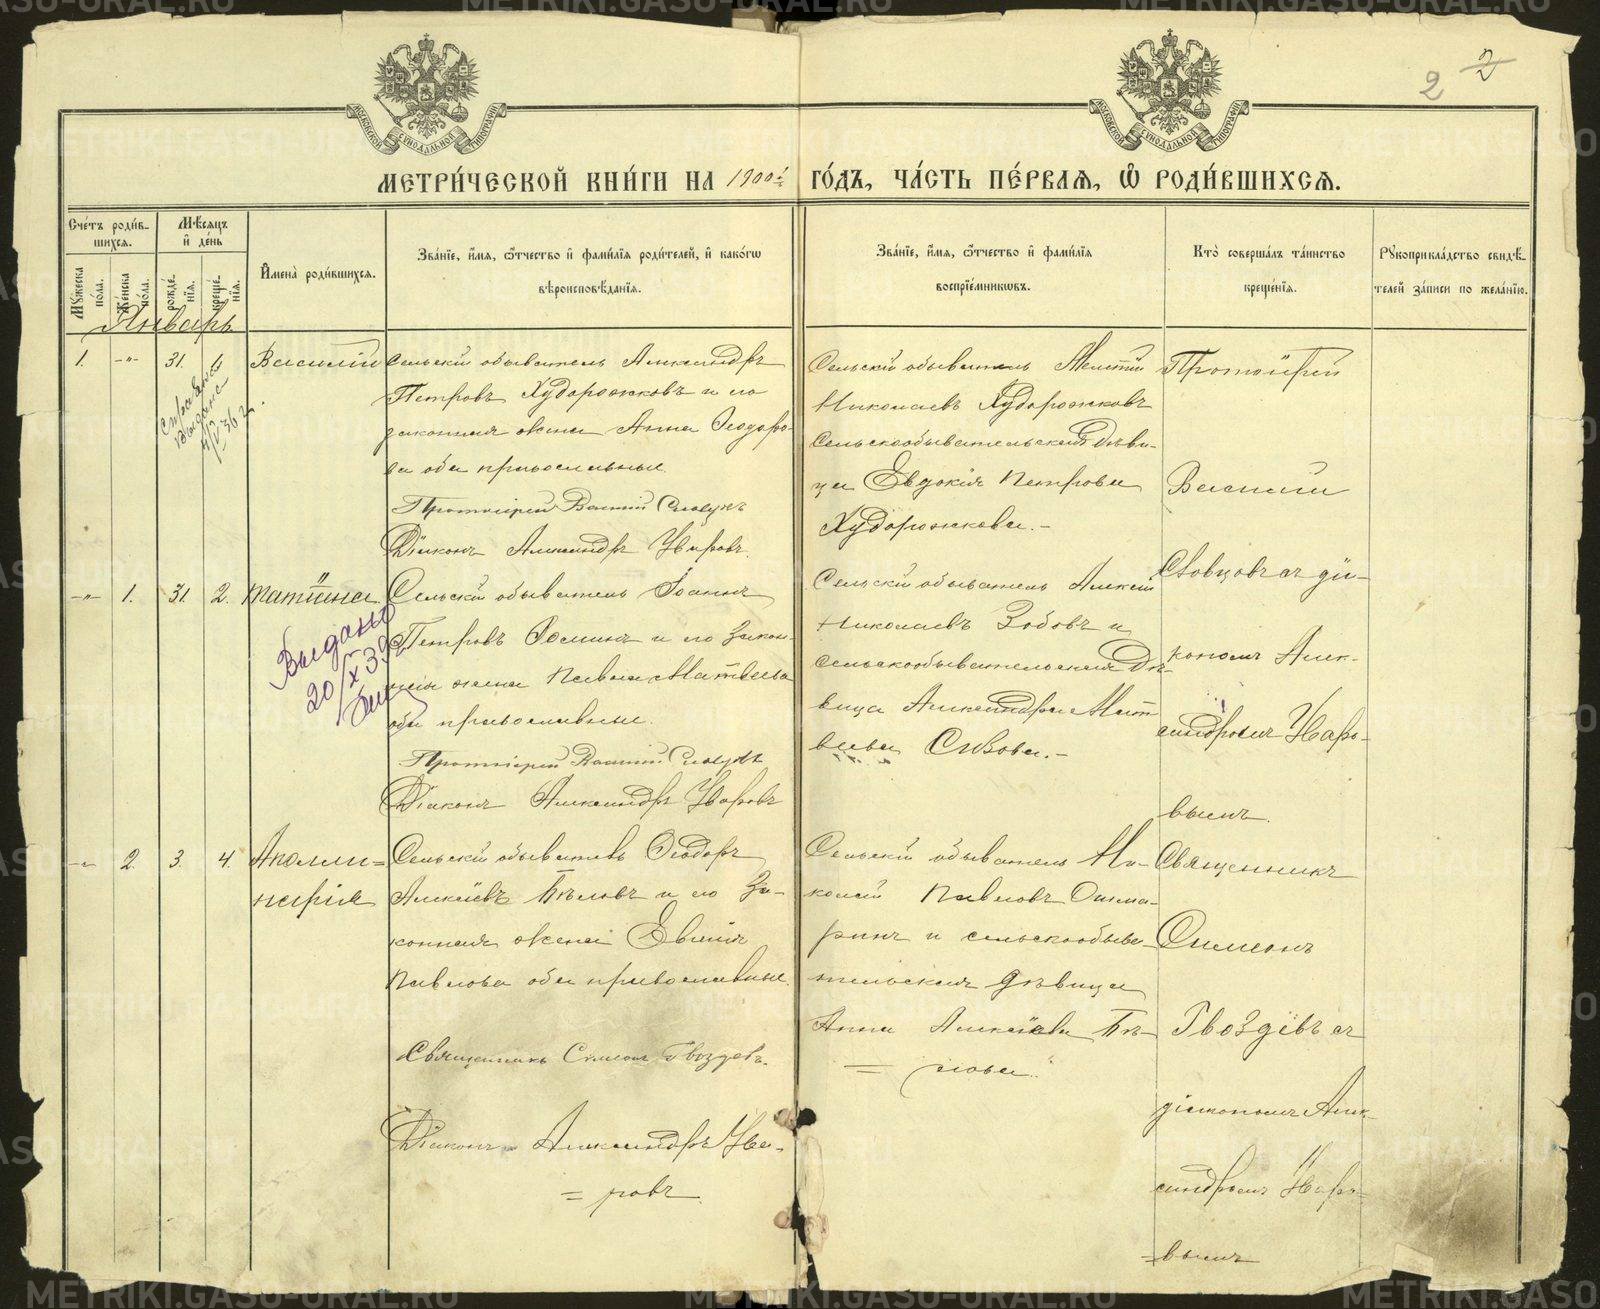 METRIKI.GASO-URAL.RU
2 2
МОСКОВСКОЙ СѴНОДАЛЬНОЙ ТИПОГРАФІИ
МОСКОВСКОЙ СѴНОДАЛЬНОЙ ТИПОГРАФІИ
МЕТРИ́ЧЕСКОЙ КНИ́ГИ НА 1900й ГО́ДЪ, ЧА́СТЬ ПЕ́РВАѦ, Ѡ҆ РОДИ́ВШИХСѦ.
Сче́тъ роди́в-
шихся.
Мѣ́сяцъ
и҆ де́нь
Му́жеска
по́ла.
Же́нска
по́ла.
рожде́-
нїя.
креще́-
нїя.
И҆мена̀ роди́вшихся.
Зва́нїе, и҆́мя, ѻ҆́тчество и҆ фами́лїя роди́телей, и҆ како́гѡ
вѣроисповѣ́данїя.
Зва́нїе, и҆́мя, ѻ҆́тчество и҆ фами́лїя
воспрїе́мникѡвъ.
Кто̀ соверша́лъ та́инство
креще́нїя.
Рукоприкла́дство свидѣ́-
телей за́писи по жела́нїю.
Январь
1. -"- 31. 1. Василій
Сельскій обыватель Александръ
Петровъ Худорожковъ и его
законная жена Анна Ѳеодоро-
ва оба православные.
Протоіерей Василій Словцовъ
Діаконъ Александръ Уваровъ.
Сельскій обыватель
Николаевъ Худорожковъ
сельскообывательская дѣви-
ца Евдокія Петрова
Худорожкова.-
Протоіерей
Василій
Словцовъ съ діа-
кономъ Алек-
сандромъ Уваро-
вымъ.
-"- 1. 31. 2. Татіана
Выдано
20/X 39
Сельскій обыватель Іоаннъ
Петровъ Ѳоминъ и его закон-
ная жена Павла Матвѣева
оба православные.
Протоіерей Василій Словцовъ
Діаконъ Александръ Уваровъ
Сельскій обыватель Алексій
Николаевъ Зобовъ и
сельскообывательская дѣ-
вица Александра Мат
вѣева
-"- 2. 3. 4. Аполли=
нарія
Сельскій обыватель Ѳеодоръ
Алексіевъ Бѣловъ и его за-
конная жена Евѳимія
Павлова оба православные.
Священникъ Симеонъ Гвоздевъ.
Діаконъ Александръ Ува-
= ровъ.
Сельскій обыватель Ни-
колай Павловъ
и сельскообыва-
тельская дѣвица
Анна Алексіева Бѣ-
= лова.
Священникъ
Симеонъ
Гвоздевъ съ
діакономъ Алек-
сандромъ Уваро=
=вымъ